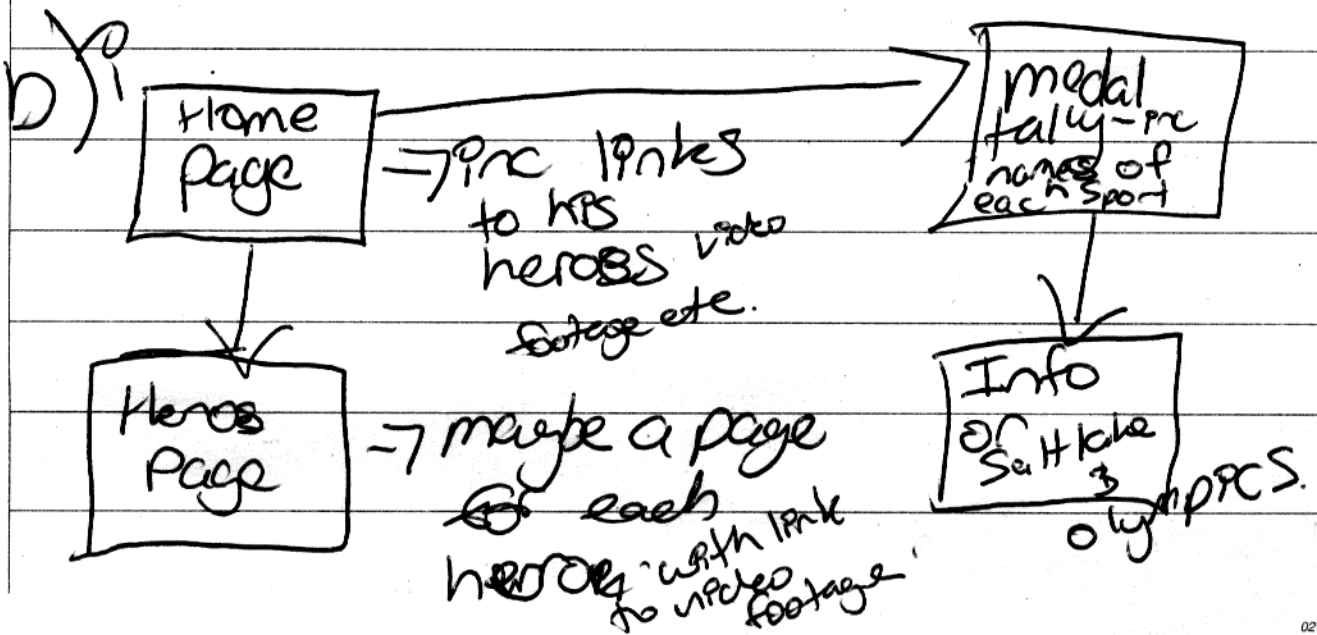 b) i
Home
page
→ inc links
to his
heros video
footage etc.
medal
tally - inc
names of
each sport
Heros
page
→ maybe a page
for each
hero with link
to video
footage
Info
on
Salt lake
&
olympics.
02